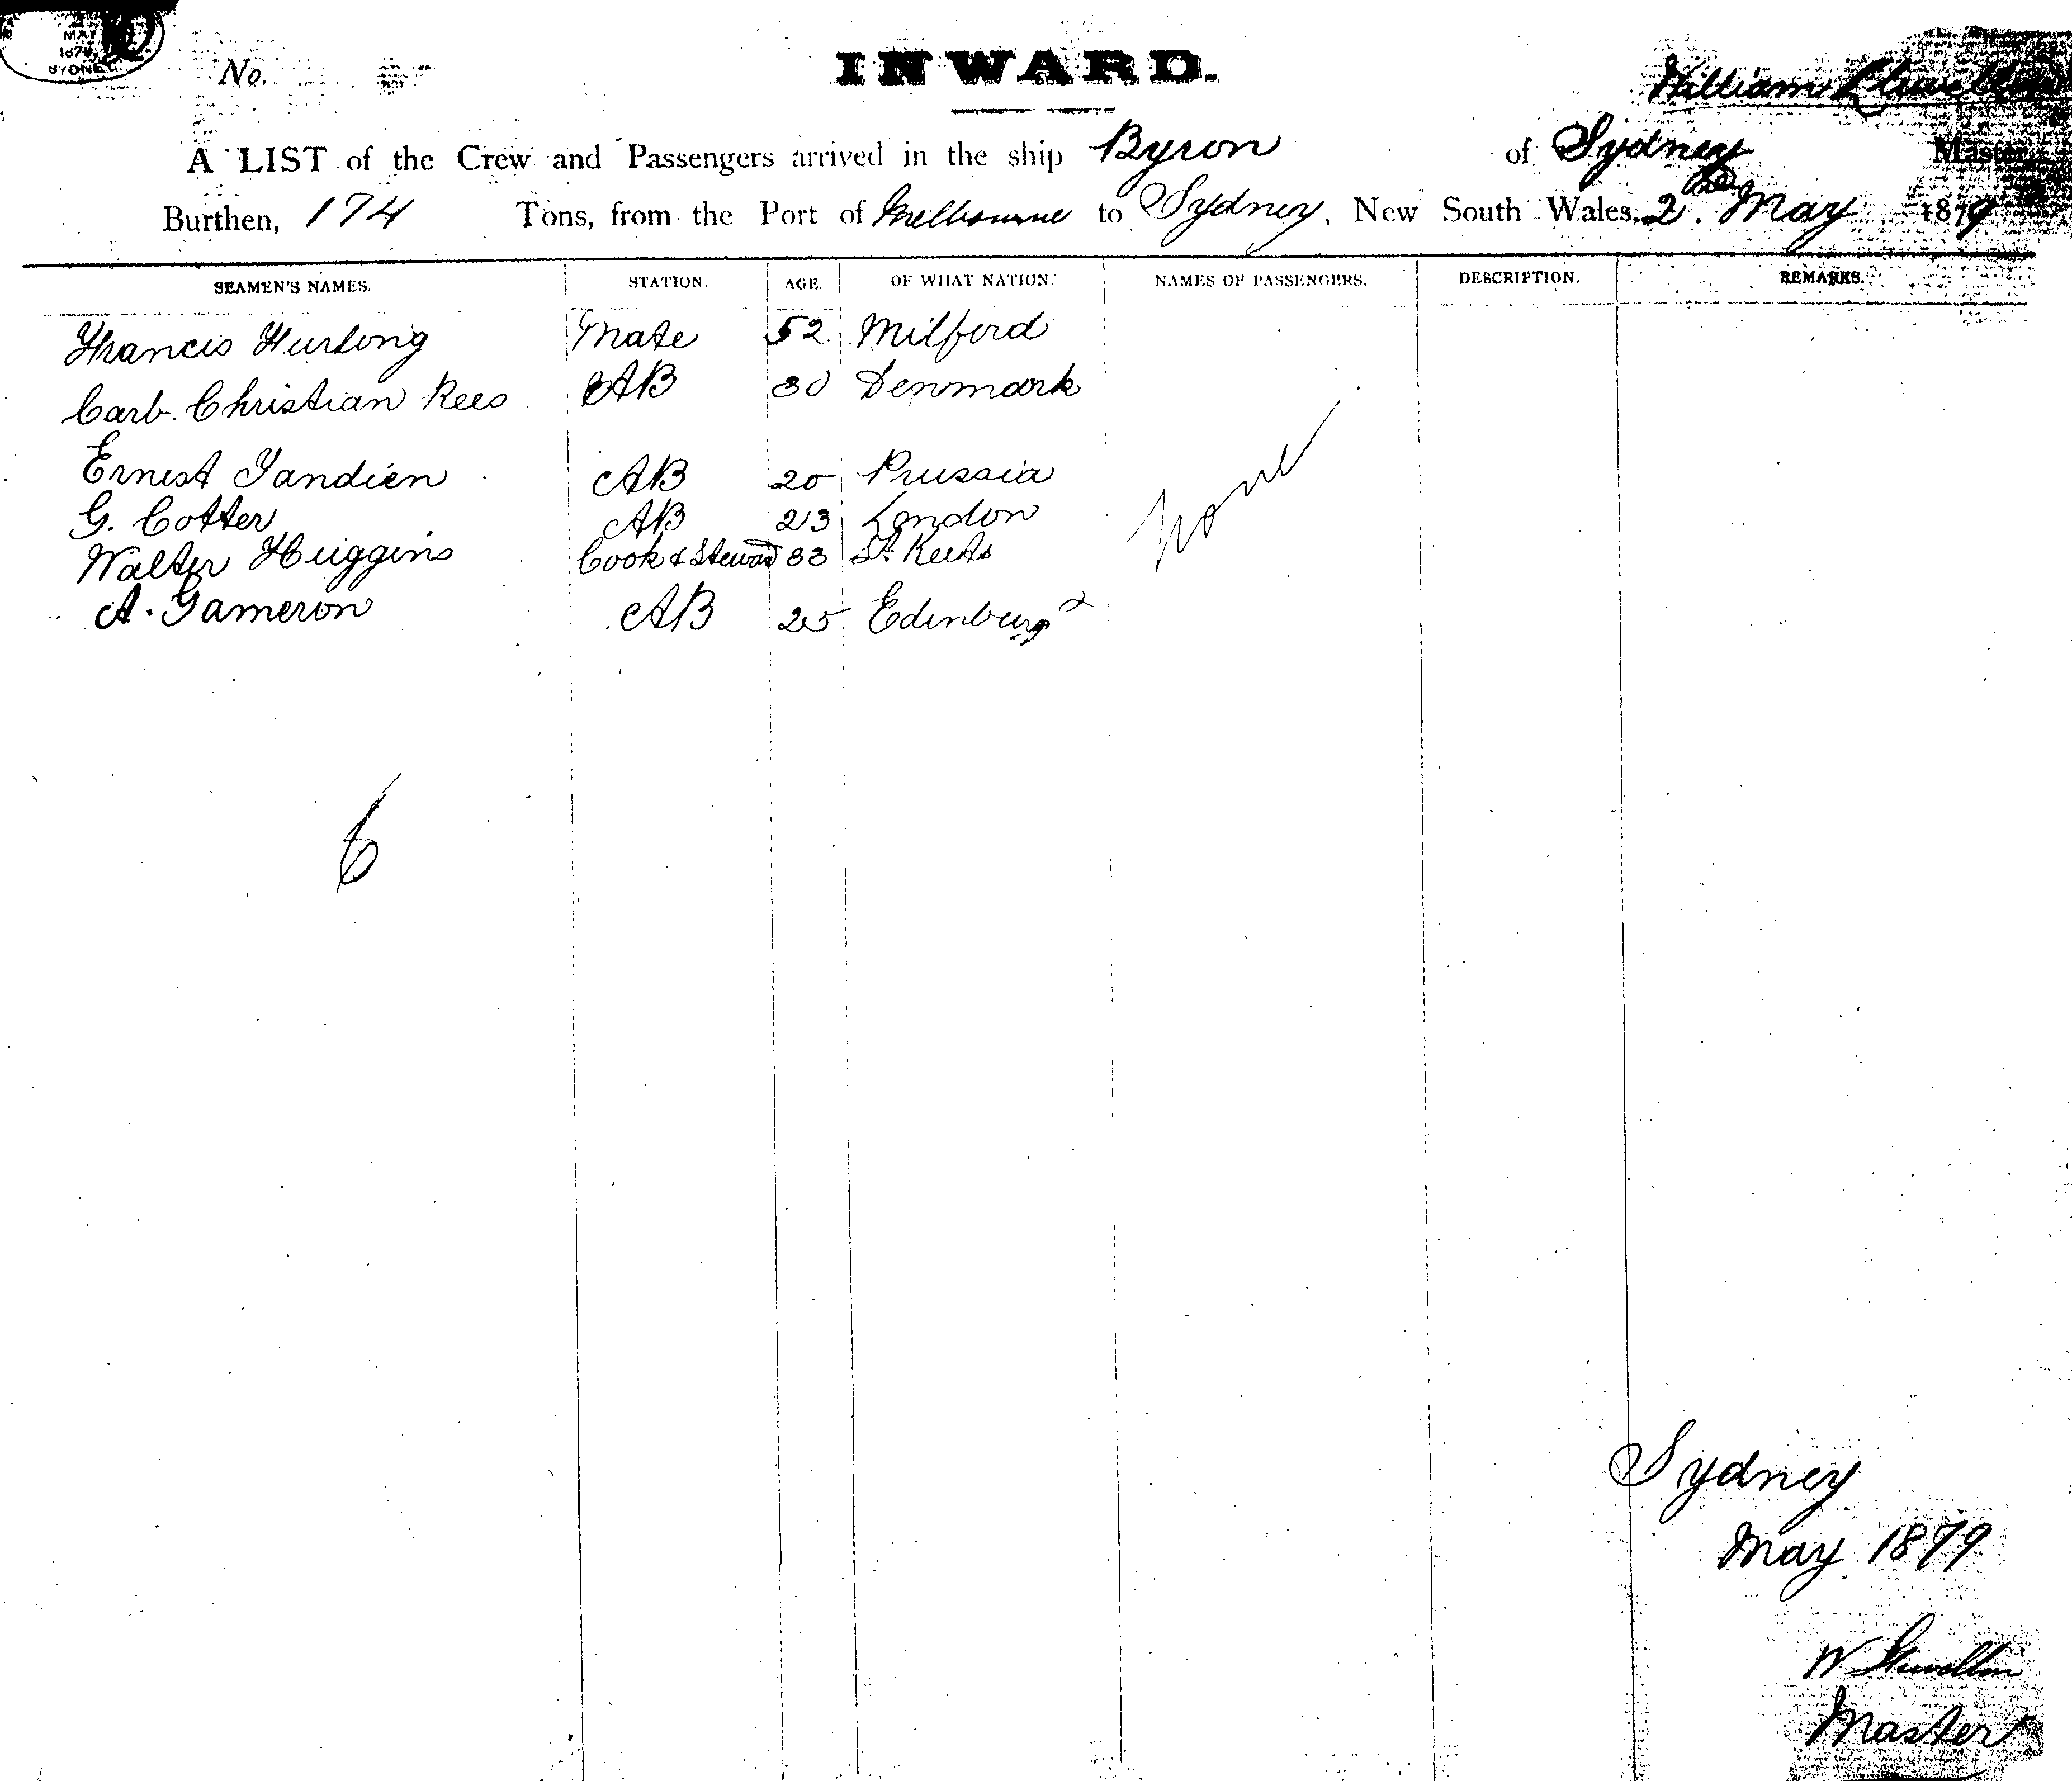 MAY
1879
SYDNEY
No.
INWARD.
William Llewellin
A LIST of the Crew and Passengers arrived in the ship Byron of Sydney Master
Burthen, 174 Tons, from the Port of Melbourne to Sydney, New South Wales, 2nd May 1879
SEAMEN'S NAMES. STATION. AGE. OF WHAT NATION. NAMES OF PASSENGERS. DESCRIPTION. REMARKS.
Francis Furlong Mate 52 Milford
Carl Christian Rees AB 30 Denmark
Ernest AB 20 Prussia
G. Cotter AB 23 London
Walter Huggins Cook & Steward 33 St. Keets
A. Gameron AB 25 Edinburg
None
6
Sydney
May 1879
W Llewellin
Master